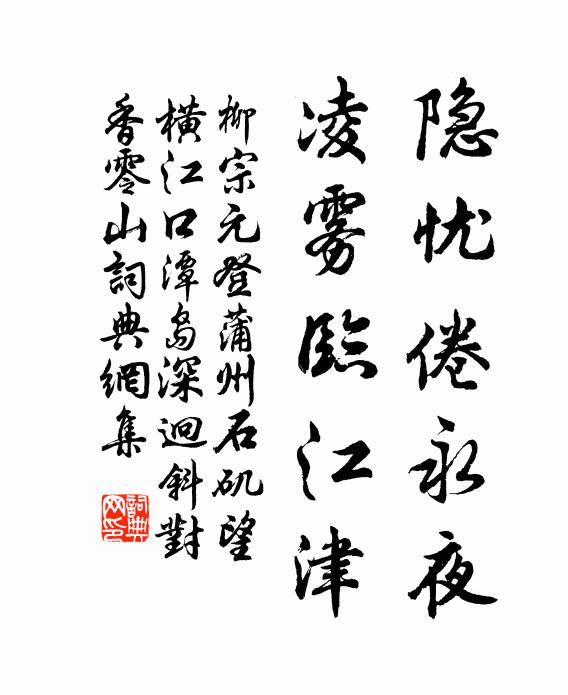 隐忧倦永夜
凌雾临江津
柳宗元登蒲州石矶望
横江口潭岛深迥斜對
香零山詞典網集
詞典
网印